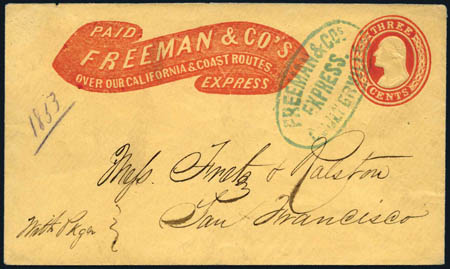 PAID
FREEMAN & CO'S
OVER OUR CALIFORNIA & COAST ROUTES
EXPRESS
FREEMAN & COs
EXPRESS
THREE
CENTS
1853
Mess. & Ralston
San Francisco
With Pkge